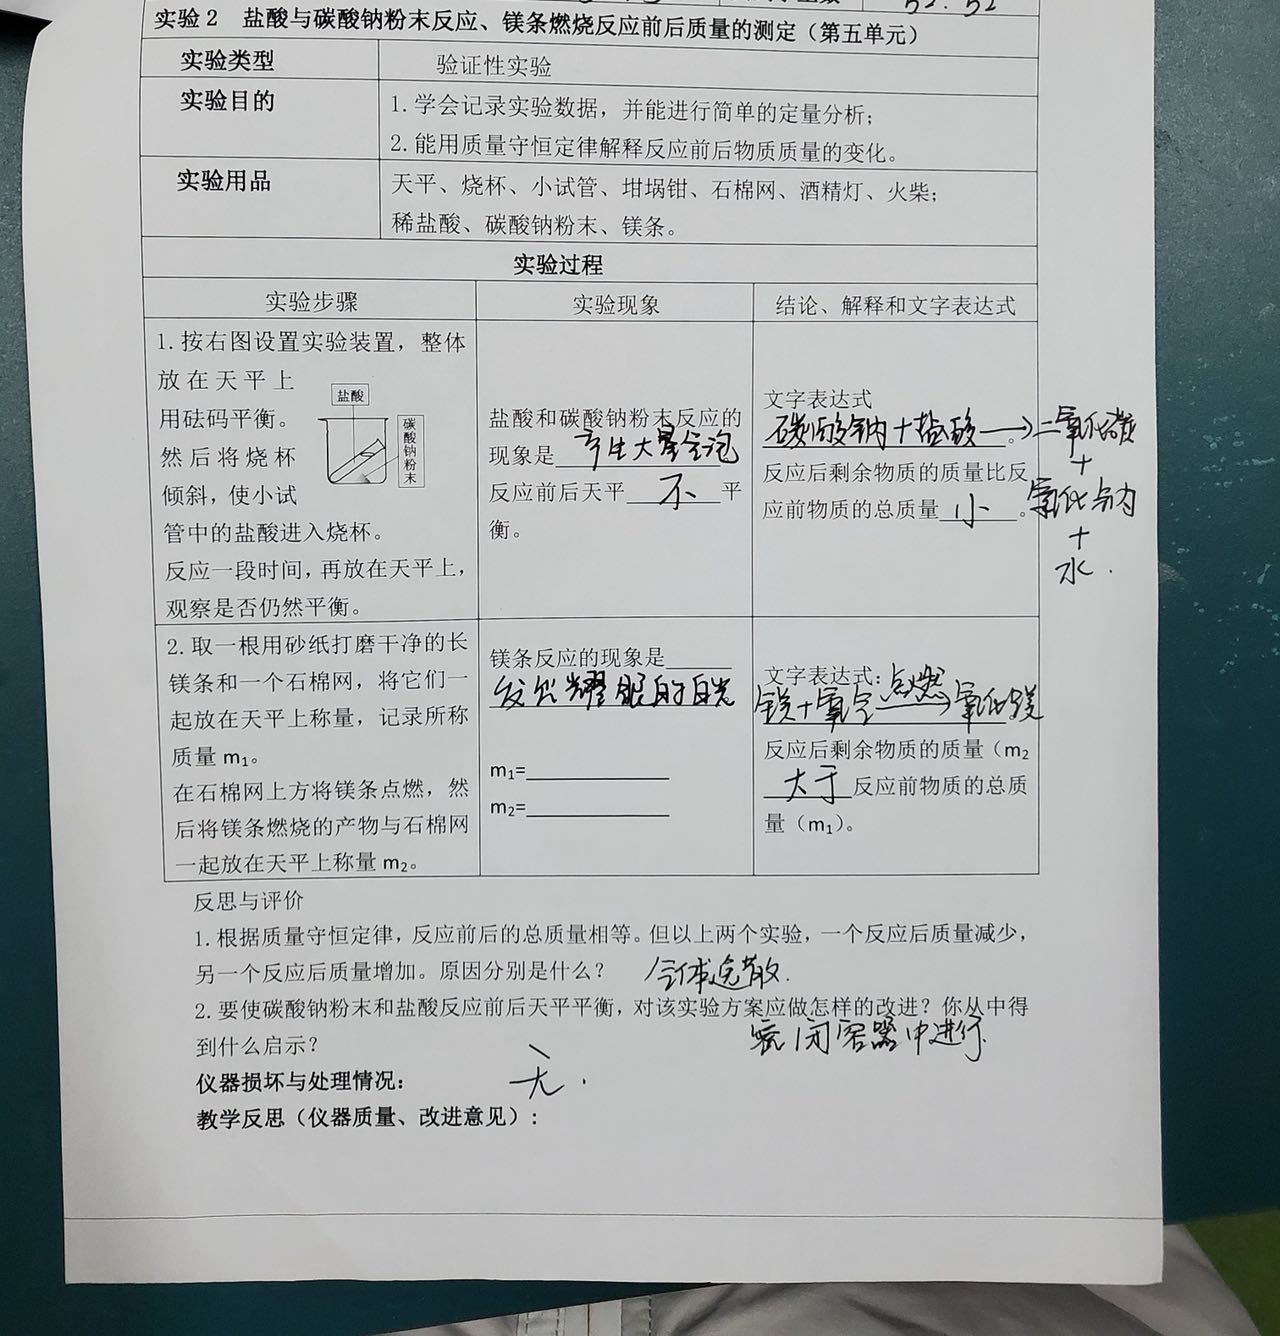 52. 52
实验2 盐酸与碳酸钠粉末反应、镁条燃烧反应前后质量的测定（第五单元）
实验类型 验证性实验
实验目的 1.学会记录实验数据，并能进行简单的定量分析；
2.能用质量守恒定律解释反应前后物质质量的变化。
实验用品 天平、烧杯、小试管、坩埚钳、石棉网、酒精灯、火柴；
稀盐酸、碳酸钠粉末、镁条。
实验过程
实验步骤 实验现象 结论、解释和文字表达式
1.按右图设置实验装置，整体
放在天平上
用砝码平衡。
然后将烧杯
倾斜，使小试
管中的盐酸进入烧杯。
反应一段时间，再放在天平上，
观察是否仍然平衡。
盐酸
碳酸钠粉末
盐酸和碳酸钠粉末反应的
现象是产生大量气泡
反应前后天平 不 平
衡。
文字表达式
碳酸钠+盐酸→二氧化碳
+
氯化钠
+
水.
反应后剩余物质的质量比反
应前物质的总质量 小 。
2.取一根用砂纸打磨干净的长
镁条和一个石棉网，将它们一
起放在天平上称量，记录所称
质量m₁。
在石棉网上方将镁条点燃，然
后将镁条燃烧的产物与石棉网
一起放在天平上称量m₂。
镁条反应的现象是______
发出耀眼的白光
m₁=__________
m₂=__________
文字表达式：点燃
镁+氧气→氧化镁
反应后剩余物质的质量（m₂
大于反应前物质的总质
量（m₁）。
反思与评价
1.根据质量守恒定律，反应前后的总质量相等。但以上两个实验，一个反应后质量减少，
另一个反应后质量增加。原因分别是什么？ 气体逸散.
2.要使碳酸钠粉末和盐酸反应前后天平平衡，对该实验方案应做怎样的改进？你从中得
到什么启示？ 密闭容器中进行.
仪器损坏与处理情况： 无.
教学反思（仪器质量、改进意见）：